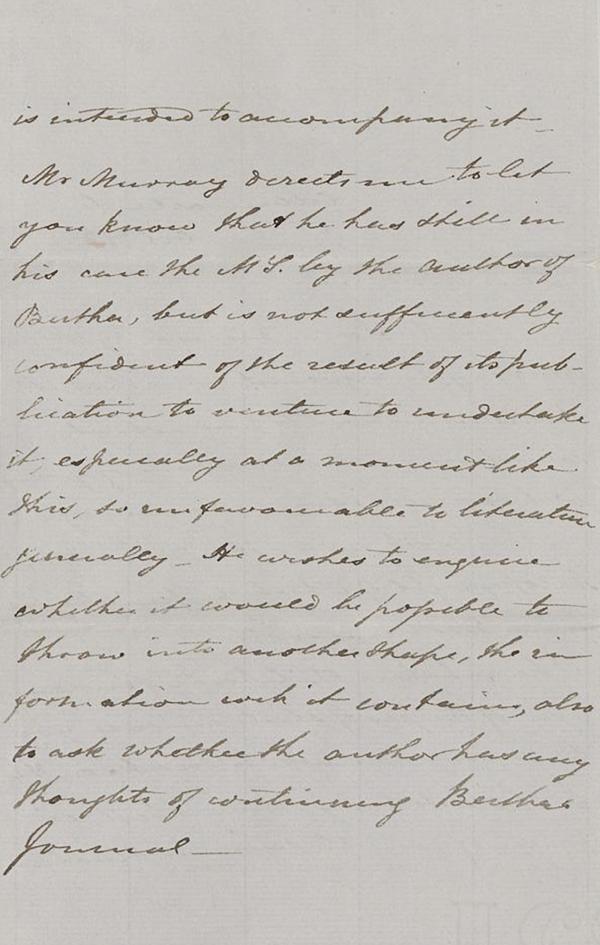 is intended to accompany it_
Mr Murray directs me to let
you know that he has still in
his care the MS. by the author of
Bertha, but is not sufficiently
confident of the result of its pub-
lication to venture to undertake
it, especially at a moment like
this, so unfavourable to literature
generally_ He wishes to enquire
whether it would be possible to
throw into another shape, the in
formation wch it contains, also
to ask whether the author has any
thoughts of continuing Berthas
Journal_